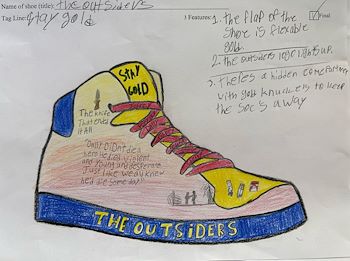 Name of shoe (title): The outsiders
Tag Line: Stay gold
3 Features: 1. the flap of the
shoe is flexable
gold
2. the outsiders logo lights up.
3. theres a hidden
with gold knuckels to keep
the soc's away
Final
STAY
GOLD
The knife
That ended
it All
"Dally Didn't die a
hero. He died violent
and young and desperate
Just like we all knew
he'd die some day"
THE OUTSIDERS